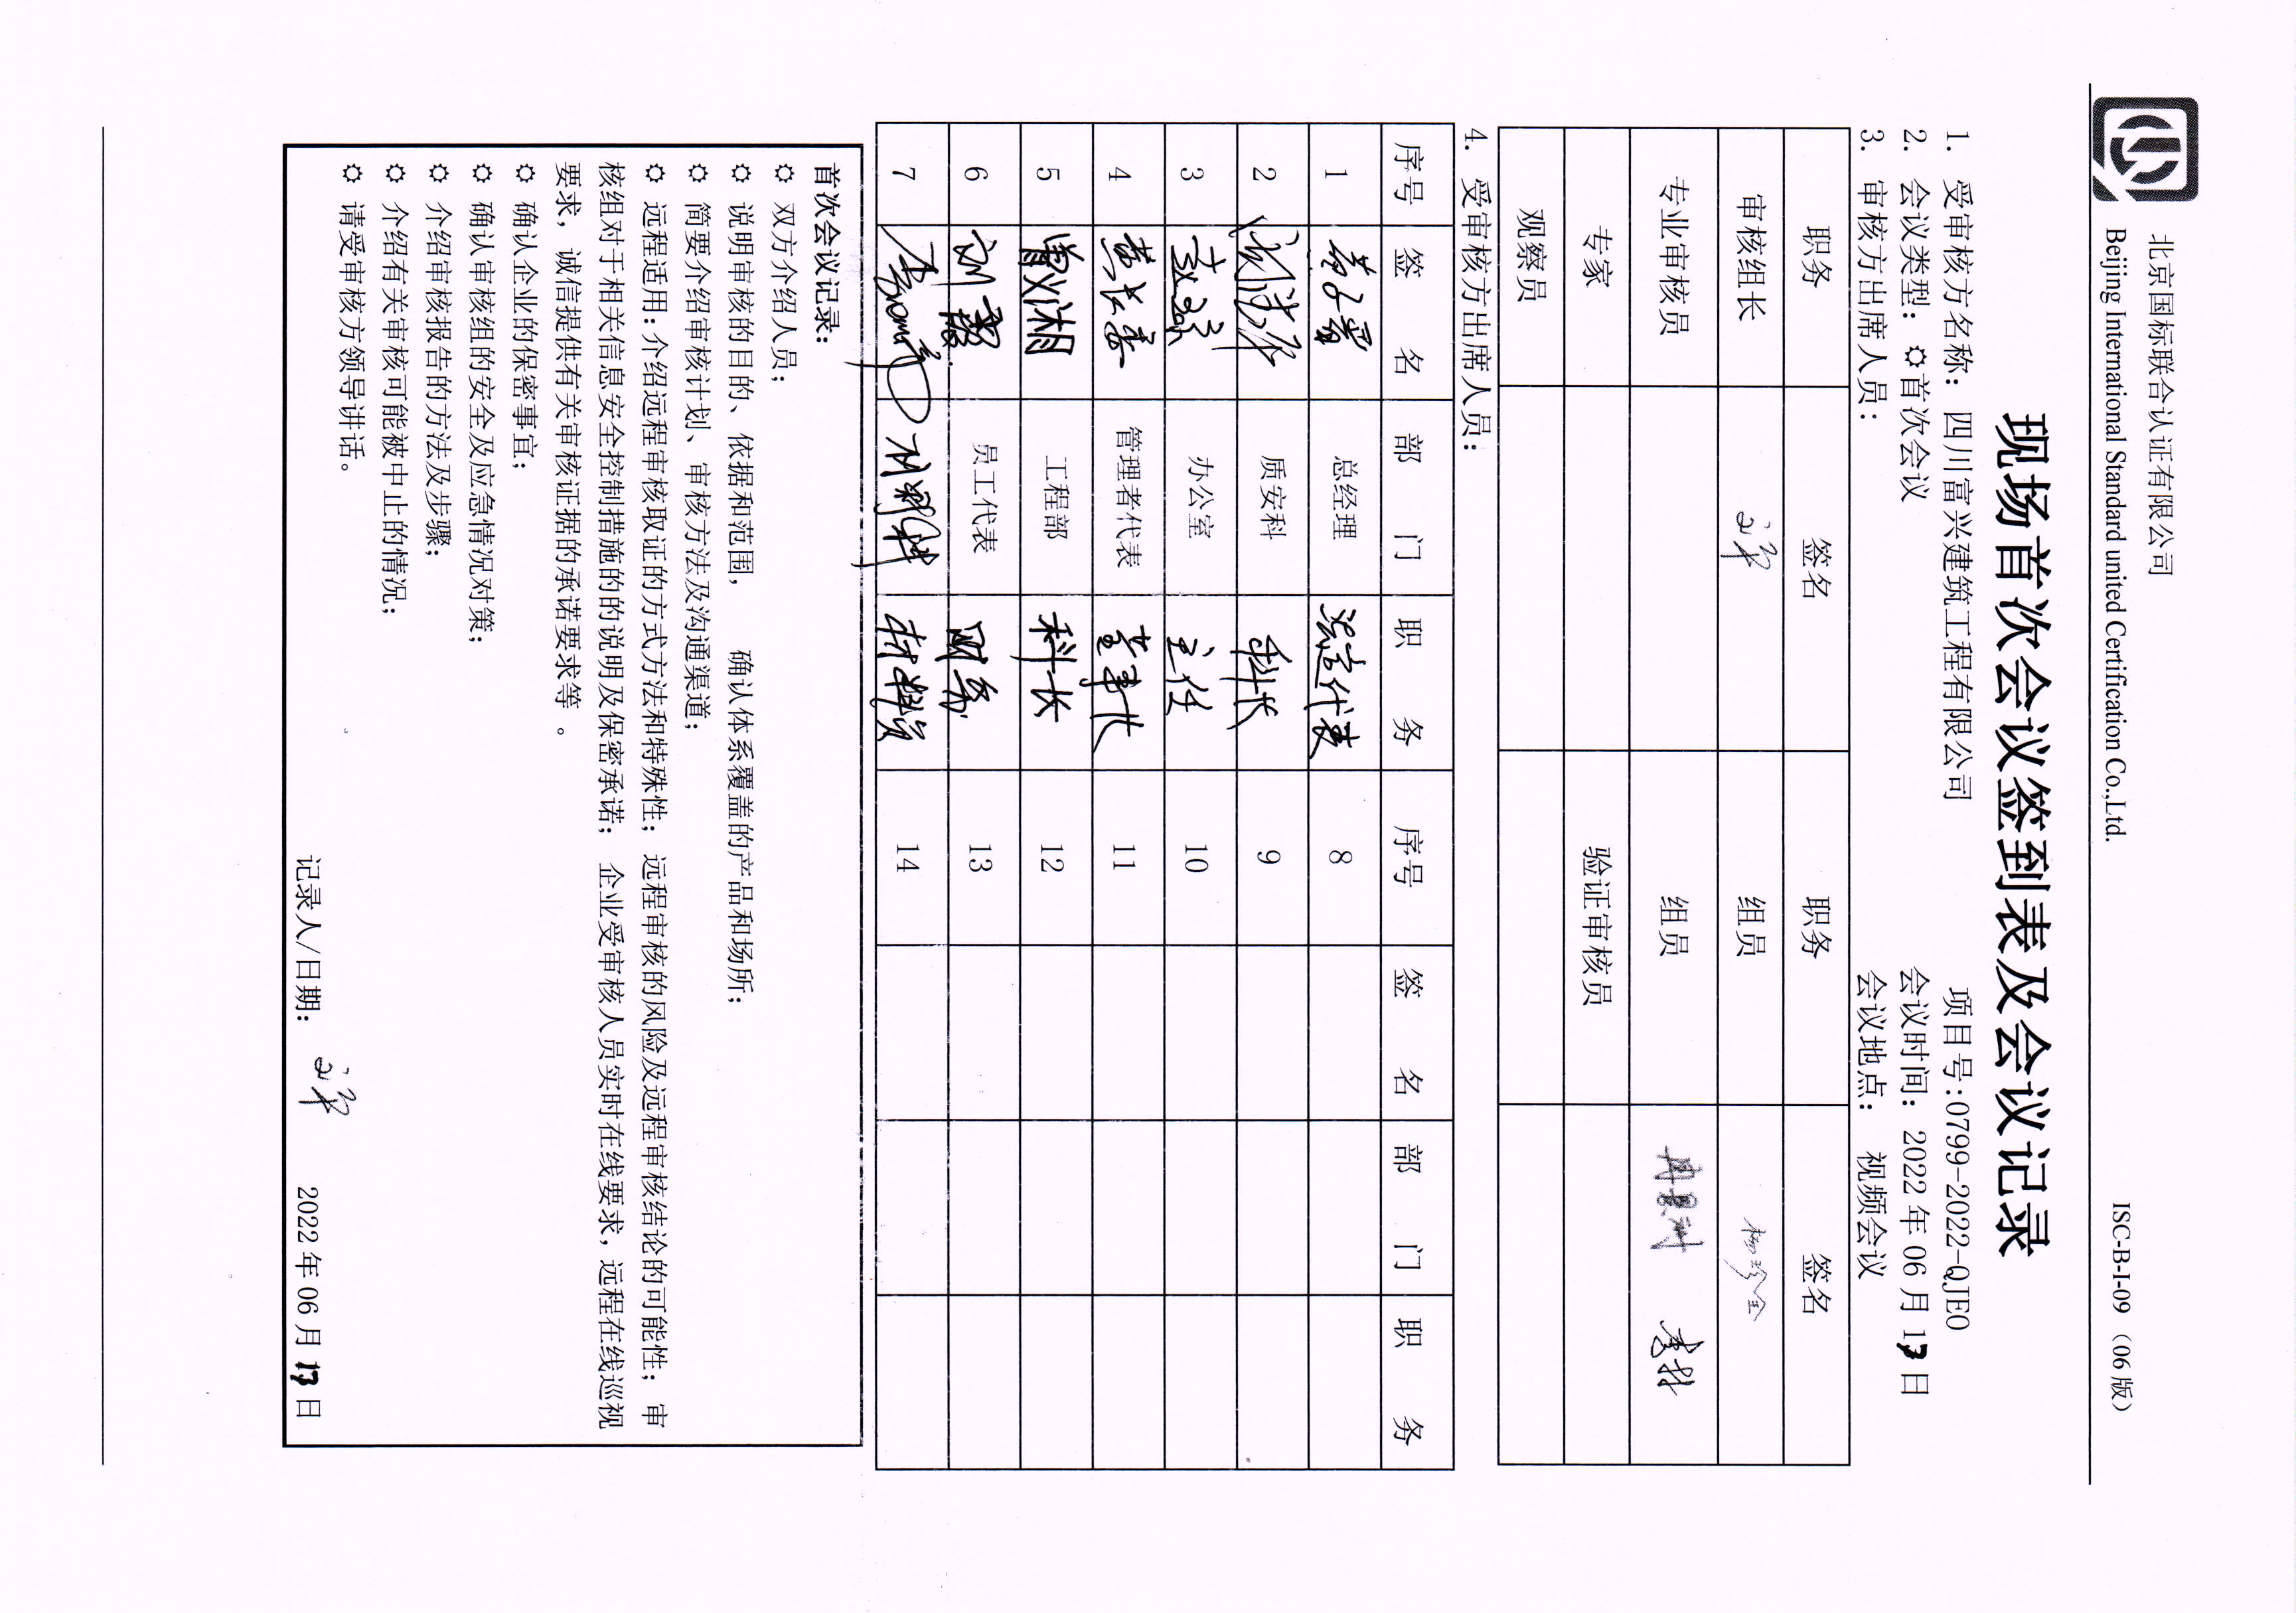 北京国标联合认证有限公司
Beijing International Standard united Certification Co.,Ltd.
ISC-B-I-09（06 版）
现场首次会议签到表及会议记录
1. 受审核方名称： 四川富兴建筑工程有限公司 项目号:0799-2022-QJEO
2. 会议类型： 首次会议 会议时间： 2022 年 06 月 13 日
3. 审核方出席人员： 会议地点： 视频会议
职务 签名 职务 签名
审核组长 组员
专业审核员 组员 李林
专家 验证审核员
观察员
4. 受审核方出席人员：
序号 签 名 部 门 职 务 序号 签 名 部 门 职 务
1 总经理 8
2 质安科 科长 9
3 办公室 主任 10
4 黄长春 管理者代表 董事长 11
5 曾义湘 工程部 科长 12
6 刘霞 员工代表 财务 13
7 材料员 14
首次会议记录：
双方介绍人员；
说明审核的目的、依据和范围， 确认体系覆盖的产品和场所；
简要介绍审核计划、审核方法及沟通渠道；
远程适用：介绍远程审核取证的方式方法和特殊性； 远程审核的风险及远程审核结论的可能性； 审
核组对于相关信息安全控制措施的的说明及保密承诺； 企业受审核人员实时在线要求，远程在线巡视
要求， 诚信提供有关审核证据的承诺要求等 。
确认企业的保密事宜；
确认审核组的安全及应急情况对策；
介绍审核报告的方法及步骤；
介绍有关审核可能被中止的情况；
请受审核方领导讲话。
记录人/日期： 2022 年 06 月 13 日